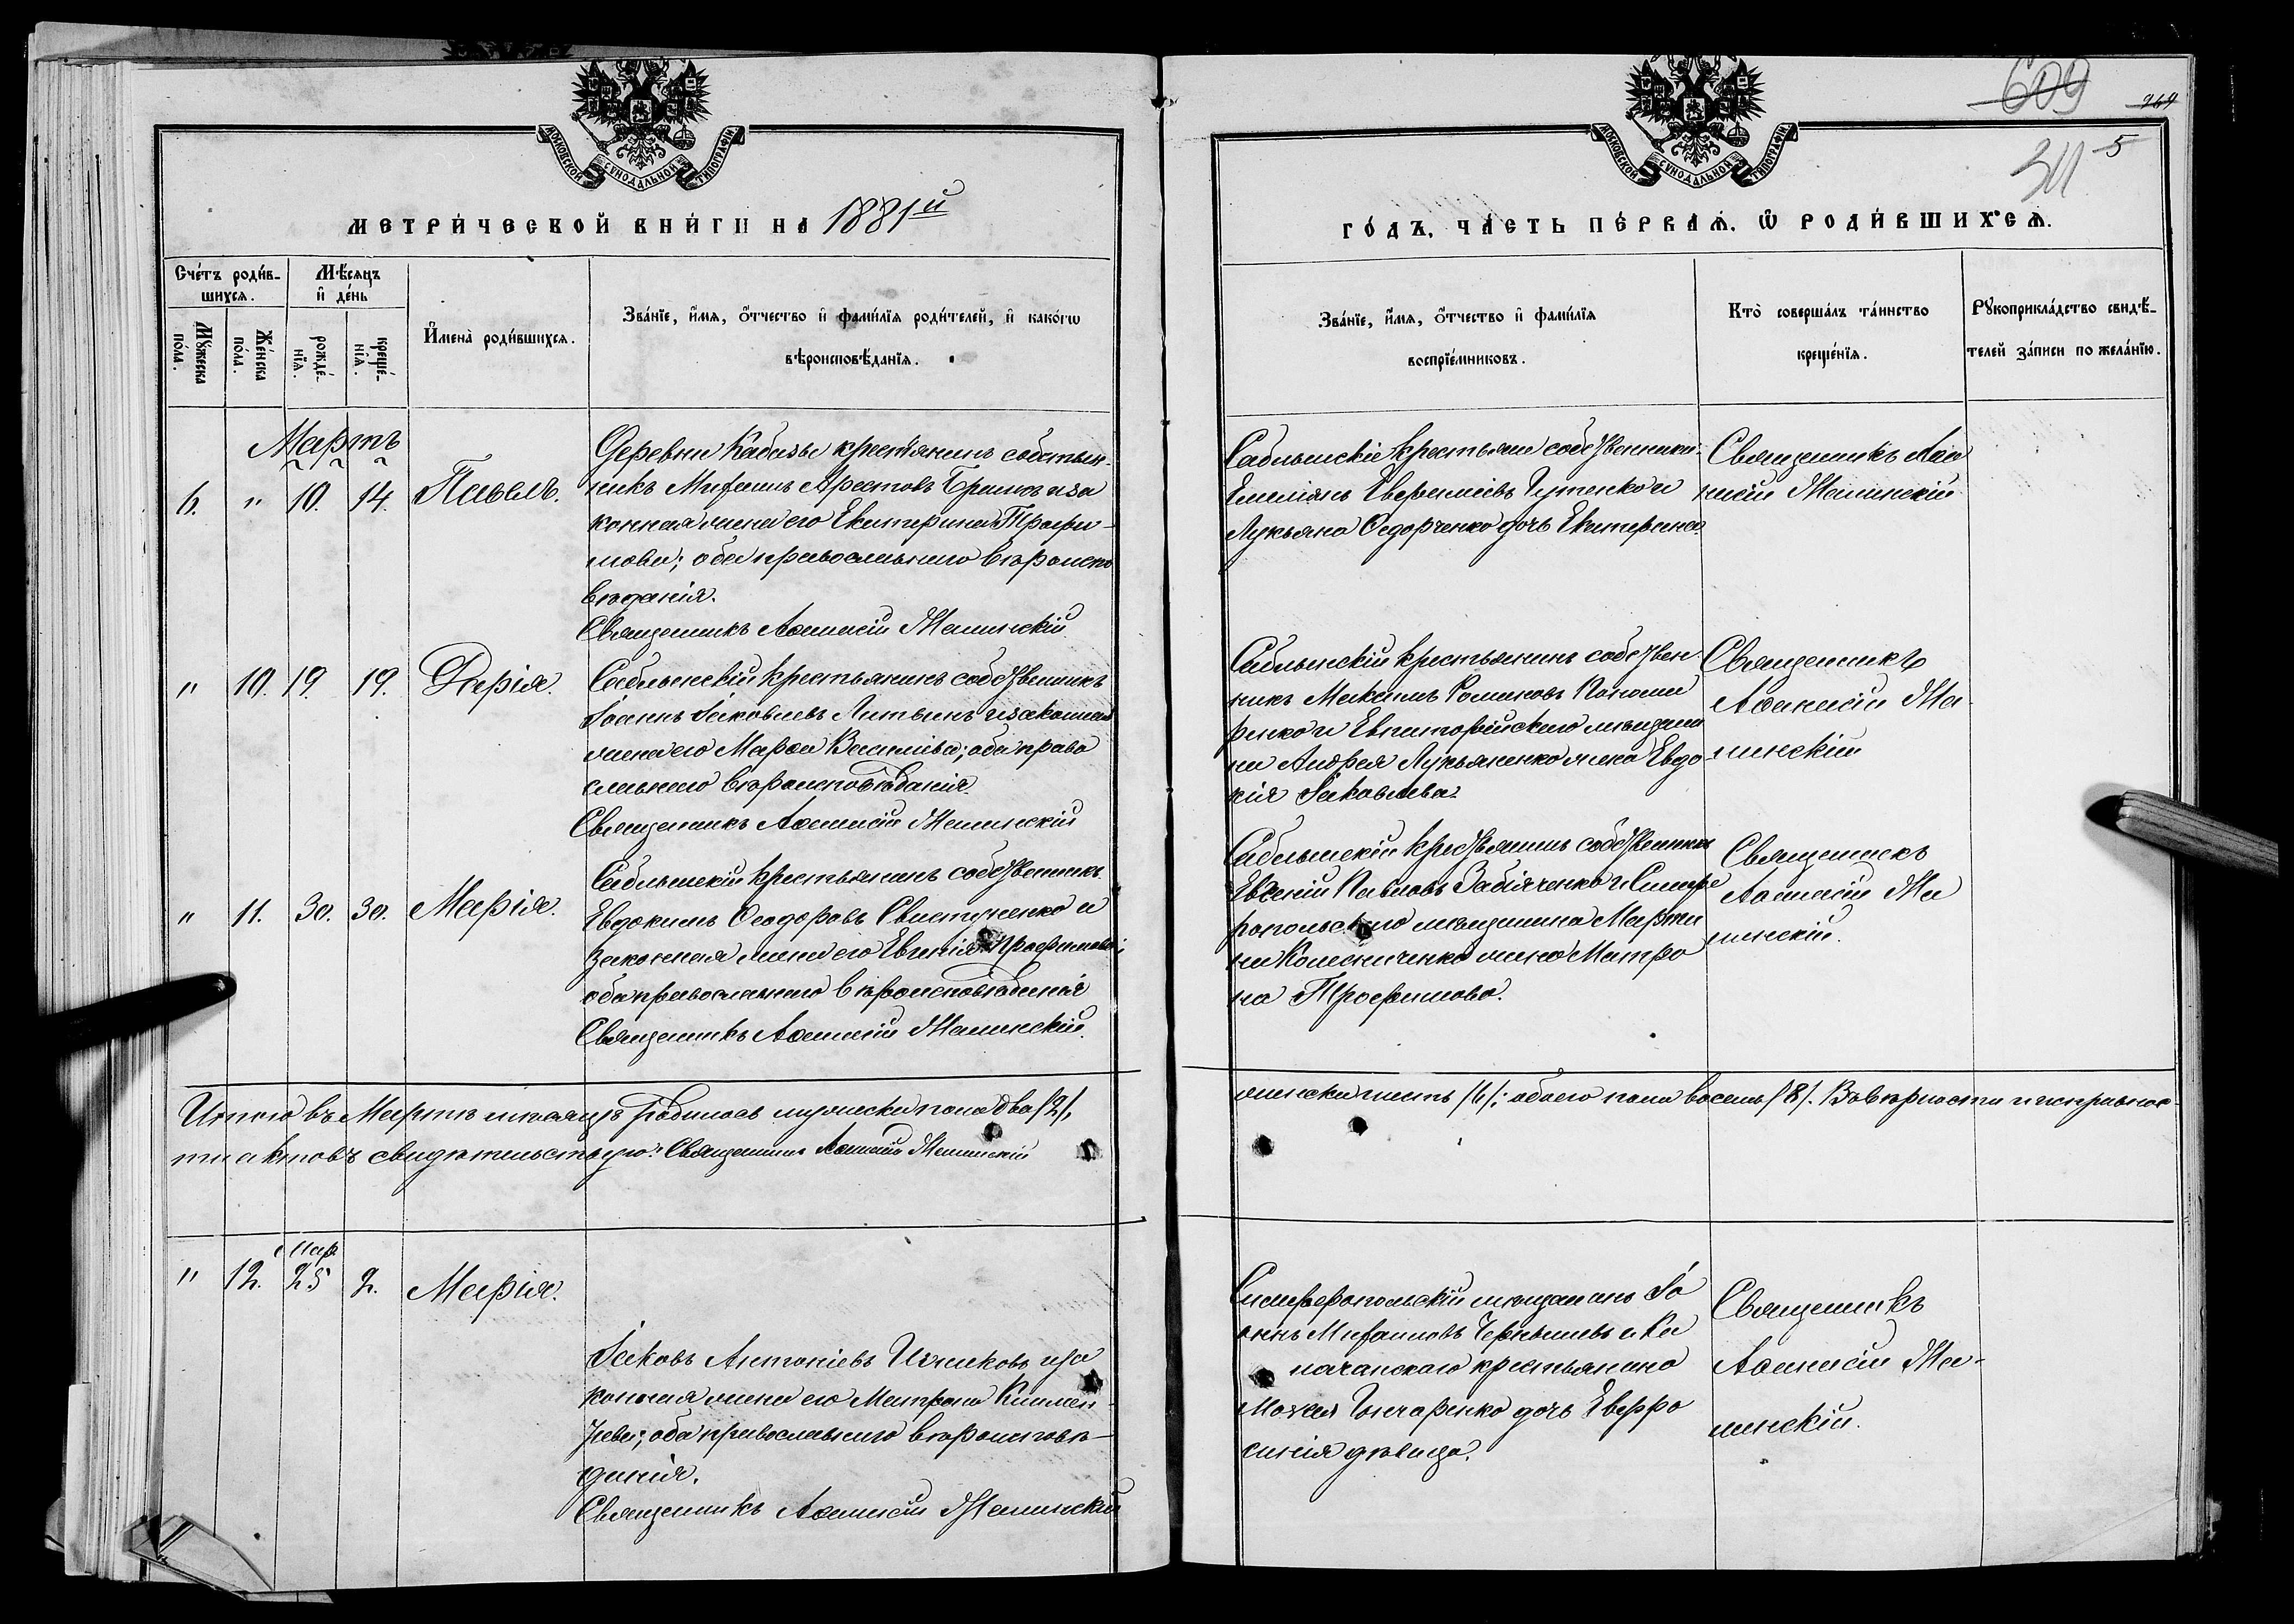 МОСКОВСКОЙ СУНОДАЛЬНОЙ ТИПОГРАФІИ
МЕТРИ́ЧЕСКОЙ КНИ́ГИ НА 1881й
Сче́тъ роди́в-
шихся.
Мѣ́сяцъ
и҆ де́нь
Му́жеска
по́ла.
Же́нска
по́ла.
рожде́-
нїѧ.
креще́-
нїѧ.
И҆мена̀ роди́вшихся.
Зва́нїе, и҆́мя, ѻ҆́тчество и҆ фами́лїя роди́телей, и҆ како́гѡ
вѣроисповѣ́данїя.
Мартъ
6. " 10. 14. Павелъ.
Деревни Кабазы крестьянинъ собствен-
никъ Михаилъ Арестовъ и за
конная жена его Екатерина Трофи-
мова; оба православнаго вѣроиспо
вѣданія.
Священникъ Аѳанасій Жалинскій
" 10. 19. 19. Дарія.
Саблынскій крестьянинъ собственникъ
Іоаннъ Іаковлевъ Литвинъ и законная
жена его Марѳа Васильева; оба право
славнаго вѣроисповѣданія.
Священникъ Аѳанасій Жалинскій
" 11. 30. 30. Марія.
Саблынскій крестьянинъ собственникъ
Евдокимъ Ѳеодоровъ Свистуненко и
законная жена его Евгенія Трофимова;
оба православнаго вѣроисповѣданія
Священникъ Аѳанасій Жалинскій.
Итого въ Мартѣ мѣсяцѣ родилось мужеска пола два /2/,
ти актовъ свидѣтельствую: Священникъ Аѳанасій Жалинскій
Мар
" 12. 25 2. Марія.
Іаковъ Антоніевъ и за
конная жена его Матрона Климен-
тьева; оба православнаго вѣроисповѣ-
данія.
Священникъ Аѳанасій Жалинскій
609
269
311 5
МОСКОВСКОЙ СУНОДАЛЬНОЙ ТИПОГРАФІИ
ГО́ДЪ, ЧА́СТЬ ПЕ́РВАѦ, Ѡ҆ РОДИ́ВШИХСѦ.
Зва́нїе, и҆́мя, ѻ҆́тчество и҆ фами́лїя
воспрїе́мниковъ.
Кто̀ соверша́лъ та́инство
креще́нїя.
Рꙋкоприкла́дство свидѣ́-
телей за́писи по жела́нїю.
Саблынскіе крестьяне собственники:
Емеліанъ и
Лукьяна Ѳедорченко дочь Екатерина.
Священникъ Аѳа
насій Жалинскій
Саблынскій крестьянинъ собствен
никъ Максимъ Романовъ Пономо
ренко и Евпаторійскаго мѣщани
на Андрея Лукьяненко жена Евдо
кія Іаковлева.
Священникъ
Аѳанасій Жа-
линскій
Саблынскій крестьянинъ собственникъ
Евсеній Павловъ Забіяченко и Симфе
ропольскаго мѣщанина Марти
на Колесниченко жена Матро
на Трофимова.
Священникъ
Аѳанасій Жа
линскій.
женска шесть /6/; обоего пола восемь /8/. Въ вѣрности и исправнос-
Симферопольскій мѣщанинъ Іо
аннъ Михаиловъ Чернышевъ и Ка
пачанскаго крестьянина
Мокея Гончаренко дочь Евфро
синія дѣвица.
Священникъ
Аѳанасій Жа-
линскій.